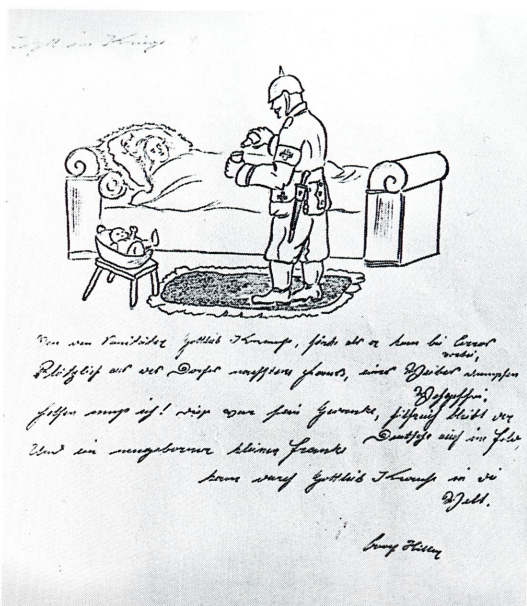 Idyll im Kriege
Sanitäter Gottlieb Krause, hörte als er kam bei Arras
vorbei,
Plötzlich aus des Dorfes nächstem Hause, eines Weibes dumpfen
Wehgeschrei:
Helfen muß ich! dies war sein Gedanke, hilfreich bleibt der
Deutsche auch im Feld,
Und ein neugeborner kleiner Franke
kam durch Gottlieb Krause in die
Welt.
Adolf Hitler